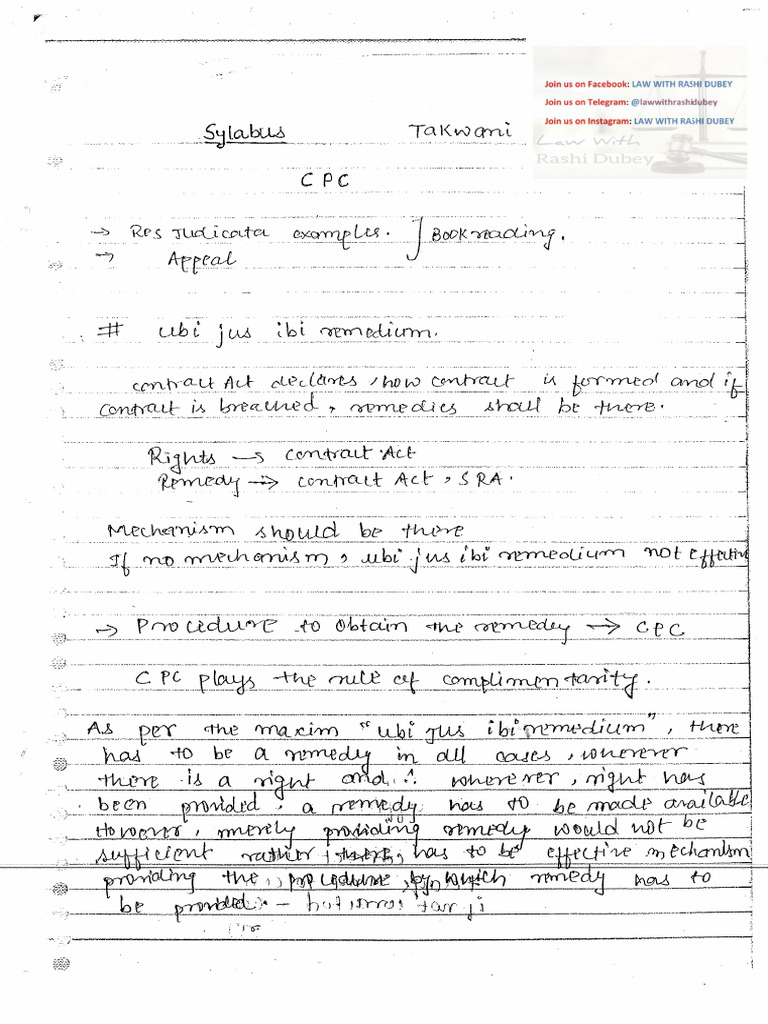 Join us on Facebook: LAW WITH RASHI DUBEY
Join us on Telegram: @lawwithrashidubey
Join us on Instagram: LAW WITH RASHI DUBEY
Law With
Rashi Dubey
Sylabus Takwani
CPC
→ Res Judicata examples. ] Book reading.
→ Appeal
# ubi jus ibi remedium.
contract Act declares, how contract is formed and if
contract is breached, remedies shall be there.
Rights → contract Act
Remedy → contract Act, SRA.
Mechanism should be there
If no mechanism, ubi jus ibi remedium not effective
→ Procedure to obtain the remedy → CPC
CPC plays the rule of complimentarity.
As per the maxim "ubi jus ibi remedium", there
has to be a remedy in all cases, wherever
there is a right and ∴ wherever, right has
been provided, a remedy has to be made available
However, merely providing remedy would not be
sufficient rather there has to be effective mechanism
providing the procedure by which remedy has to
be provided -